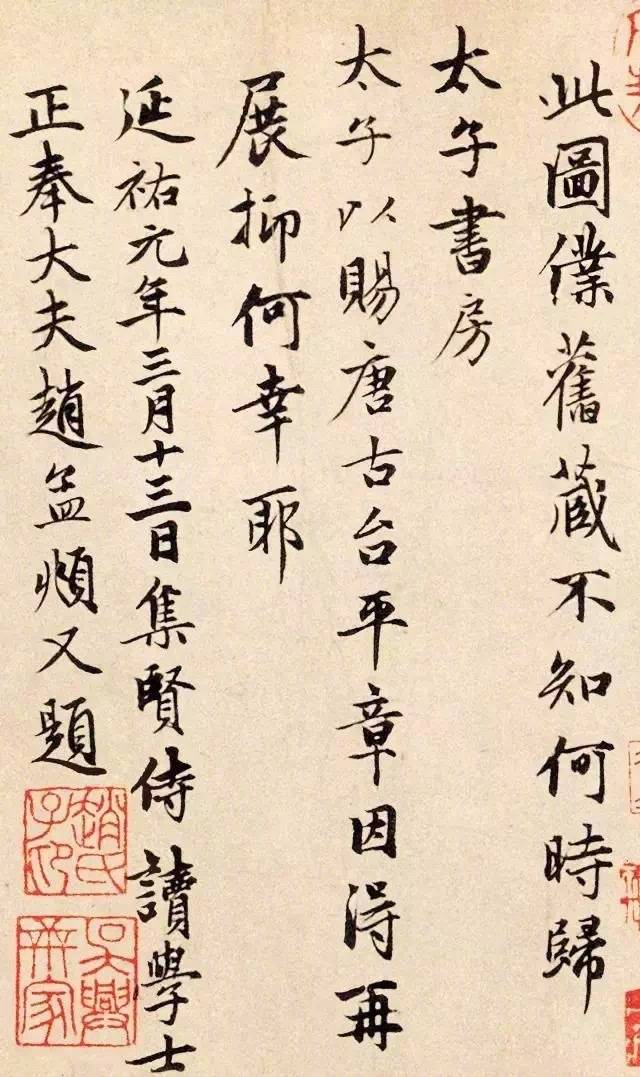 此圖僕舊藏不知何時歸
太子書房
太子以賜唐古台平章因得再
展抑何幸耶
延祐元年三月十三日集賢侍讀學士
正奉大夫趙孟頫又題
趙氏子印
吳興